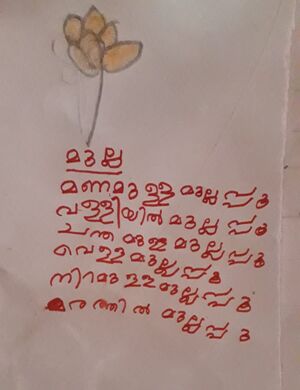 മുല്ല
മണമുള്ള മുല്ലപ്പൂ
വള്ളിയിൽ മുല്ലപ്പൂ
ചന്തമുള്ള മുല്ലപ്പൂ
വെള്ള മുല്ലപ്പൂ
നിറമുള്ള മുല്ലപ്പൂ
മരത്തിൽ മുല്ലപ്പൂ